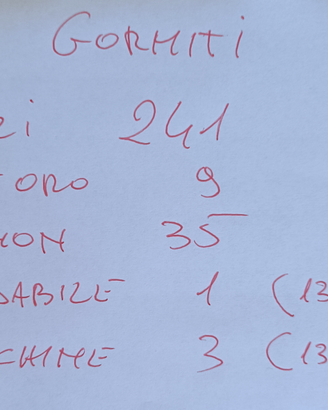 GORMITI
ei 241
ORO 9
ON 35
DABILE 1 (13
CHINE 3 (13